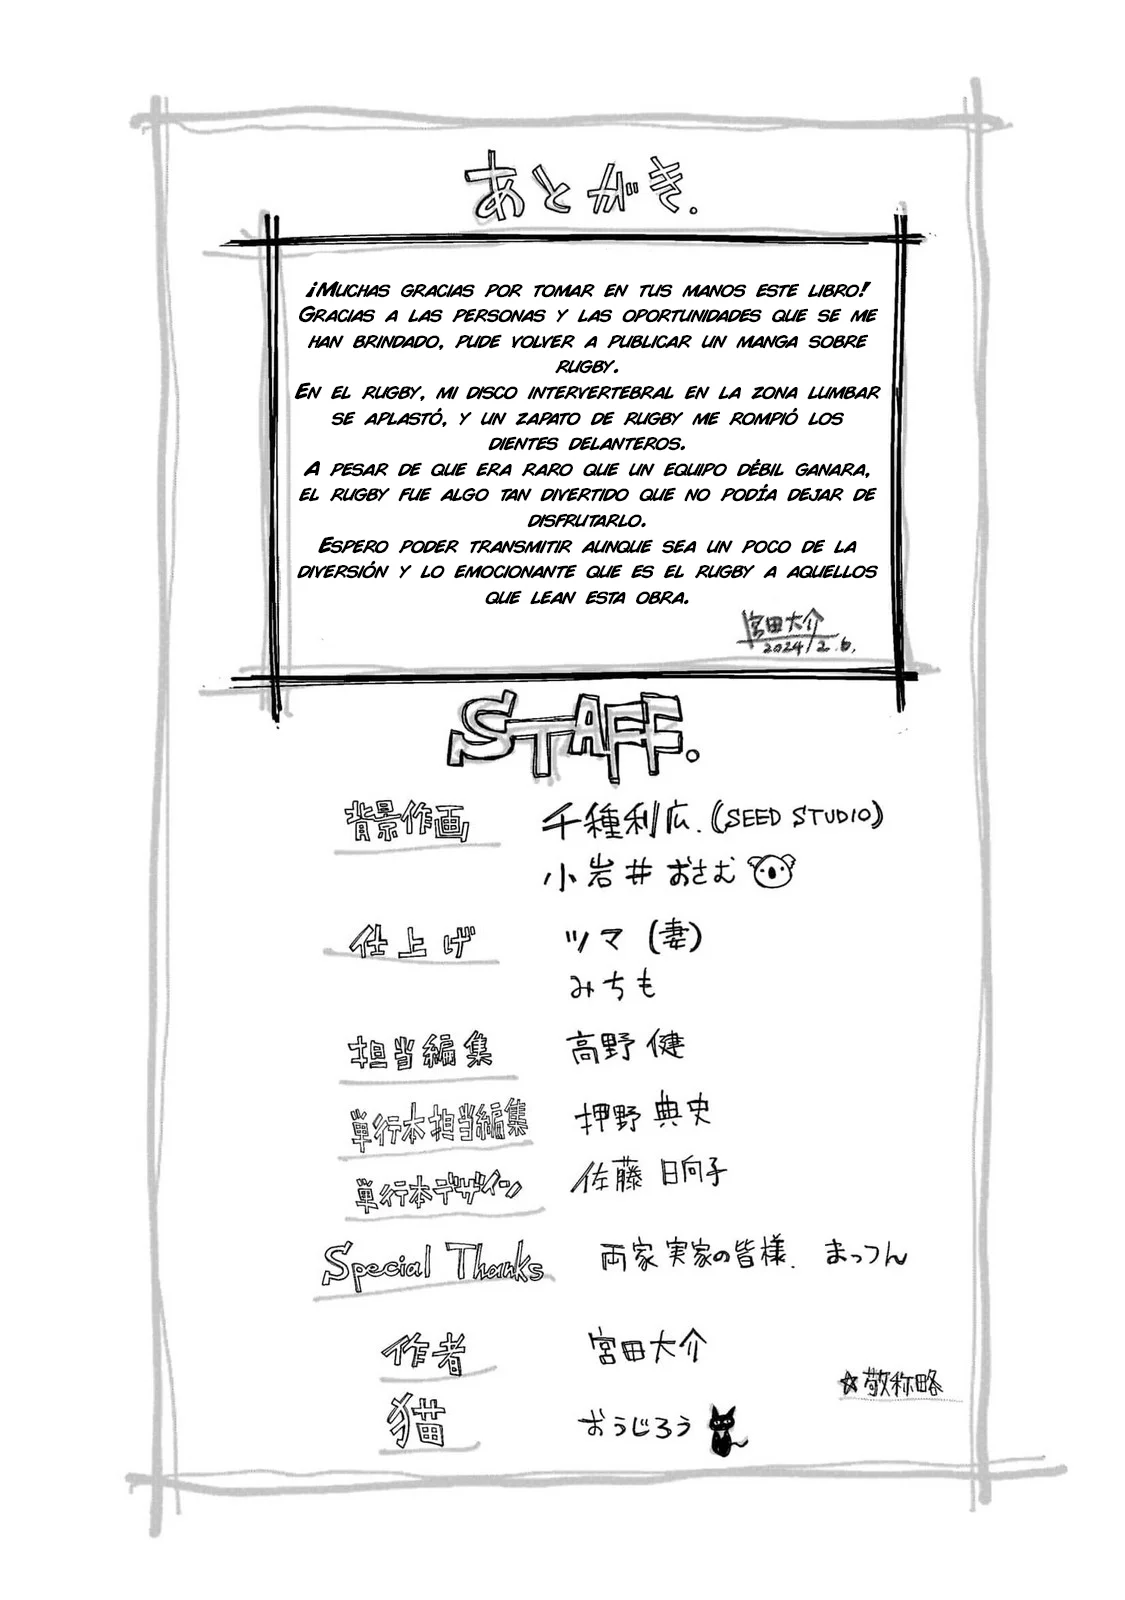 あとがき.
¡MUCHAS GRACIAS POR TOMAR EN TUS MANOS ESTE LIBRO!
GRACIAS A LAS PERSONAS Y LAS OPORTUNIDADES QUE SE ME
HAN BRINDADO, PUDE VOLVER A PUBLICAR UN MANGA SOBRE
RUGBY.
EN EL RUGBY, MI DISCO INTERVERTEBRAL EN LA ZONA LUMBAR
SE APLASTÓ, Y UN ZAPATO DE RUGBY ME ROMPIÓ LOS
DIENTES DELANTEROS.
A PESAR DE QUE ERA RARO QUE UN EQUIPO DÉBIL GANARA,
EL RUGBY FUE ALGO TAN DIVERTIDO QUE NO PODÍA DEJAR DE
DISFRUTARLO.
ESPERO PODER TRANSMITIR AUNQUE SEA UN POCO DE LA
DIVERSIÓN Y LO EMOCIONANTE QUE ES EL RUGBY A AQUELLOS
QUE LEAN ESTA OBRA.
宮田大介
2024/2.6.
STAFF.
背景作画 千種利広.(SEED STUDIO)
小岩井おさむ
仕上げ ツマ(妻)
みちも
担当編集 高野健
単行本担当編集 押野典史
単行本デザイン 佐藤日向子
Special Thanks 両家実家の皆様. まっつん
作者 宮田大介
☆敬称略
猫 おうじろう